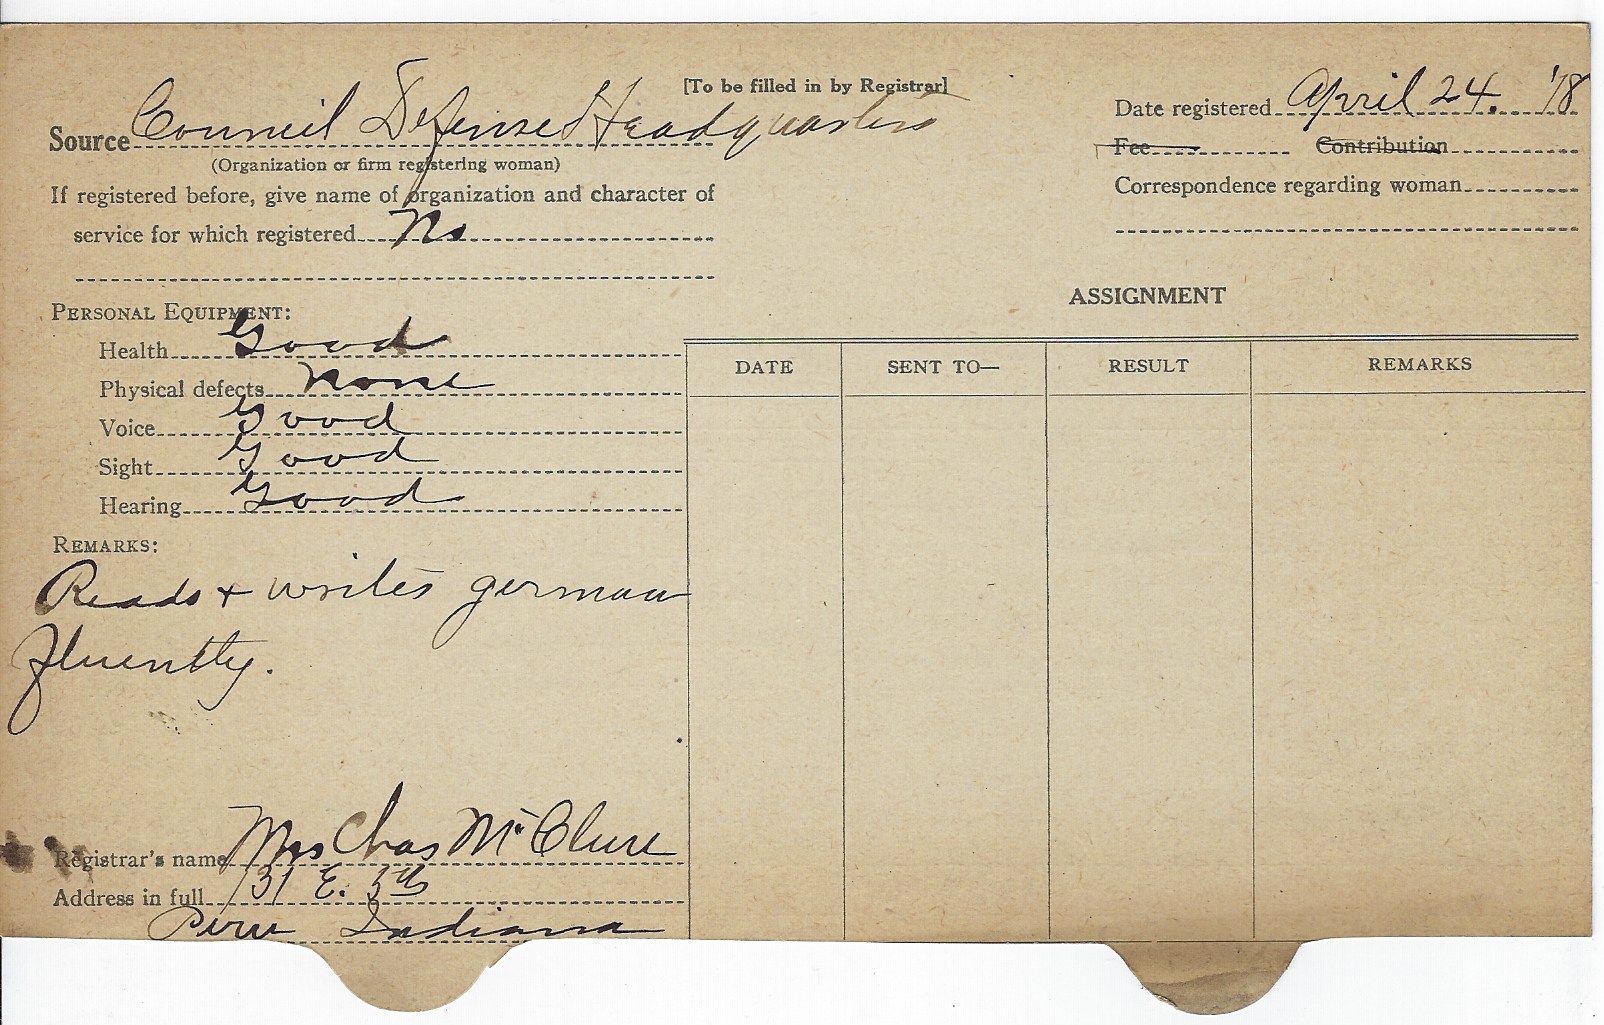 [To be filled in by Registrar]
Source Council Defense Headquarters
(Organization or firm registering woman)
If registered before, give name of organization and character of
service for which registered No
Date registered April 24. '18
Fee Contribution
Correspondence regarding woman
PERSONAL EQUIPMENT:
Health Good
Physical defects None
Voice Good
Sight Good
Hearing Good
REMARKS:
Reads + writes german
fluently.
Registrar's name Mrs Chas McClure
Address in full 131 E. 5th
Peru Indiana
ASSIGNMENT
DATE SENT TO— RESULT REMARKS